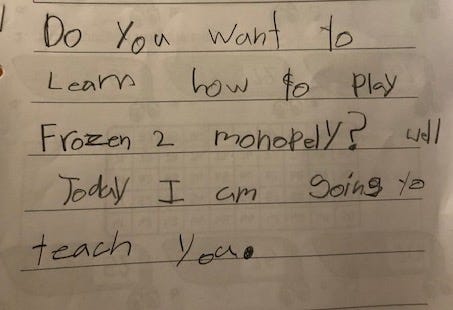 Do You want to
Learn how to play
Frozen 2 monopely? well
Today I am going to
teach you.